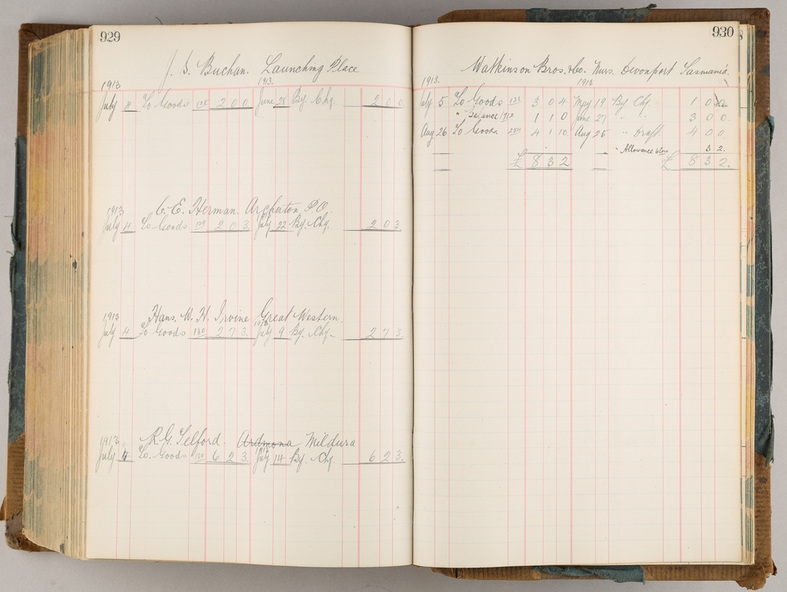 929
J. S. Buchan. Launching Place
1913 1913
July To Goods 2 0 0 June 28 By Chq. 2 0 0
1913 C. E. Herman P.O
July 4 To Goods 2 0 3 July 22 By Chq. 2 0 3
1913 Hans. W. H. Irvine Great Western
July 4 To Goods 2 7 3 July 9 By Chq 2 7 3
1913 R. G. Telford. Ardmona Mildura
July To Goods 6 2 3 July By Chq 6 2 3
930
Watkinson Bros. & Co. Nurs. Devonport Tasmania.
1913. 1913
July 5 To Goods 3 0 May 19 By Chq 1 0
" Balance 1 1 0 June 27 3 0 0
Aug 26 To Goods 4 1 Aug 25 " Draft 4 0 0
" Allowance 3 2
£ 8 3 2 £ 8 3 2